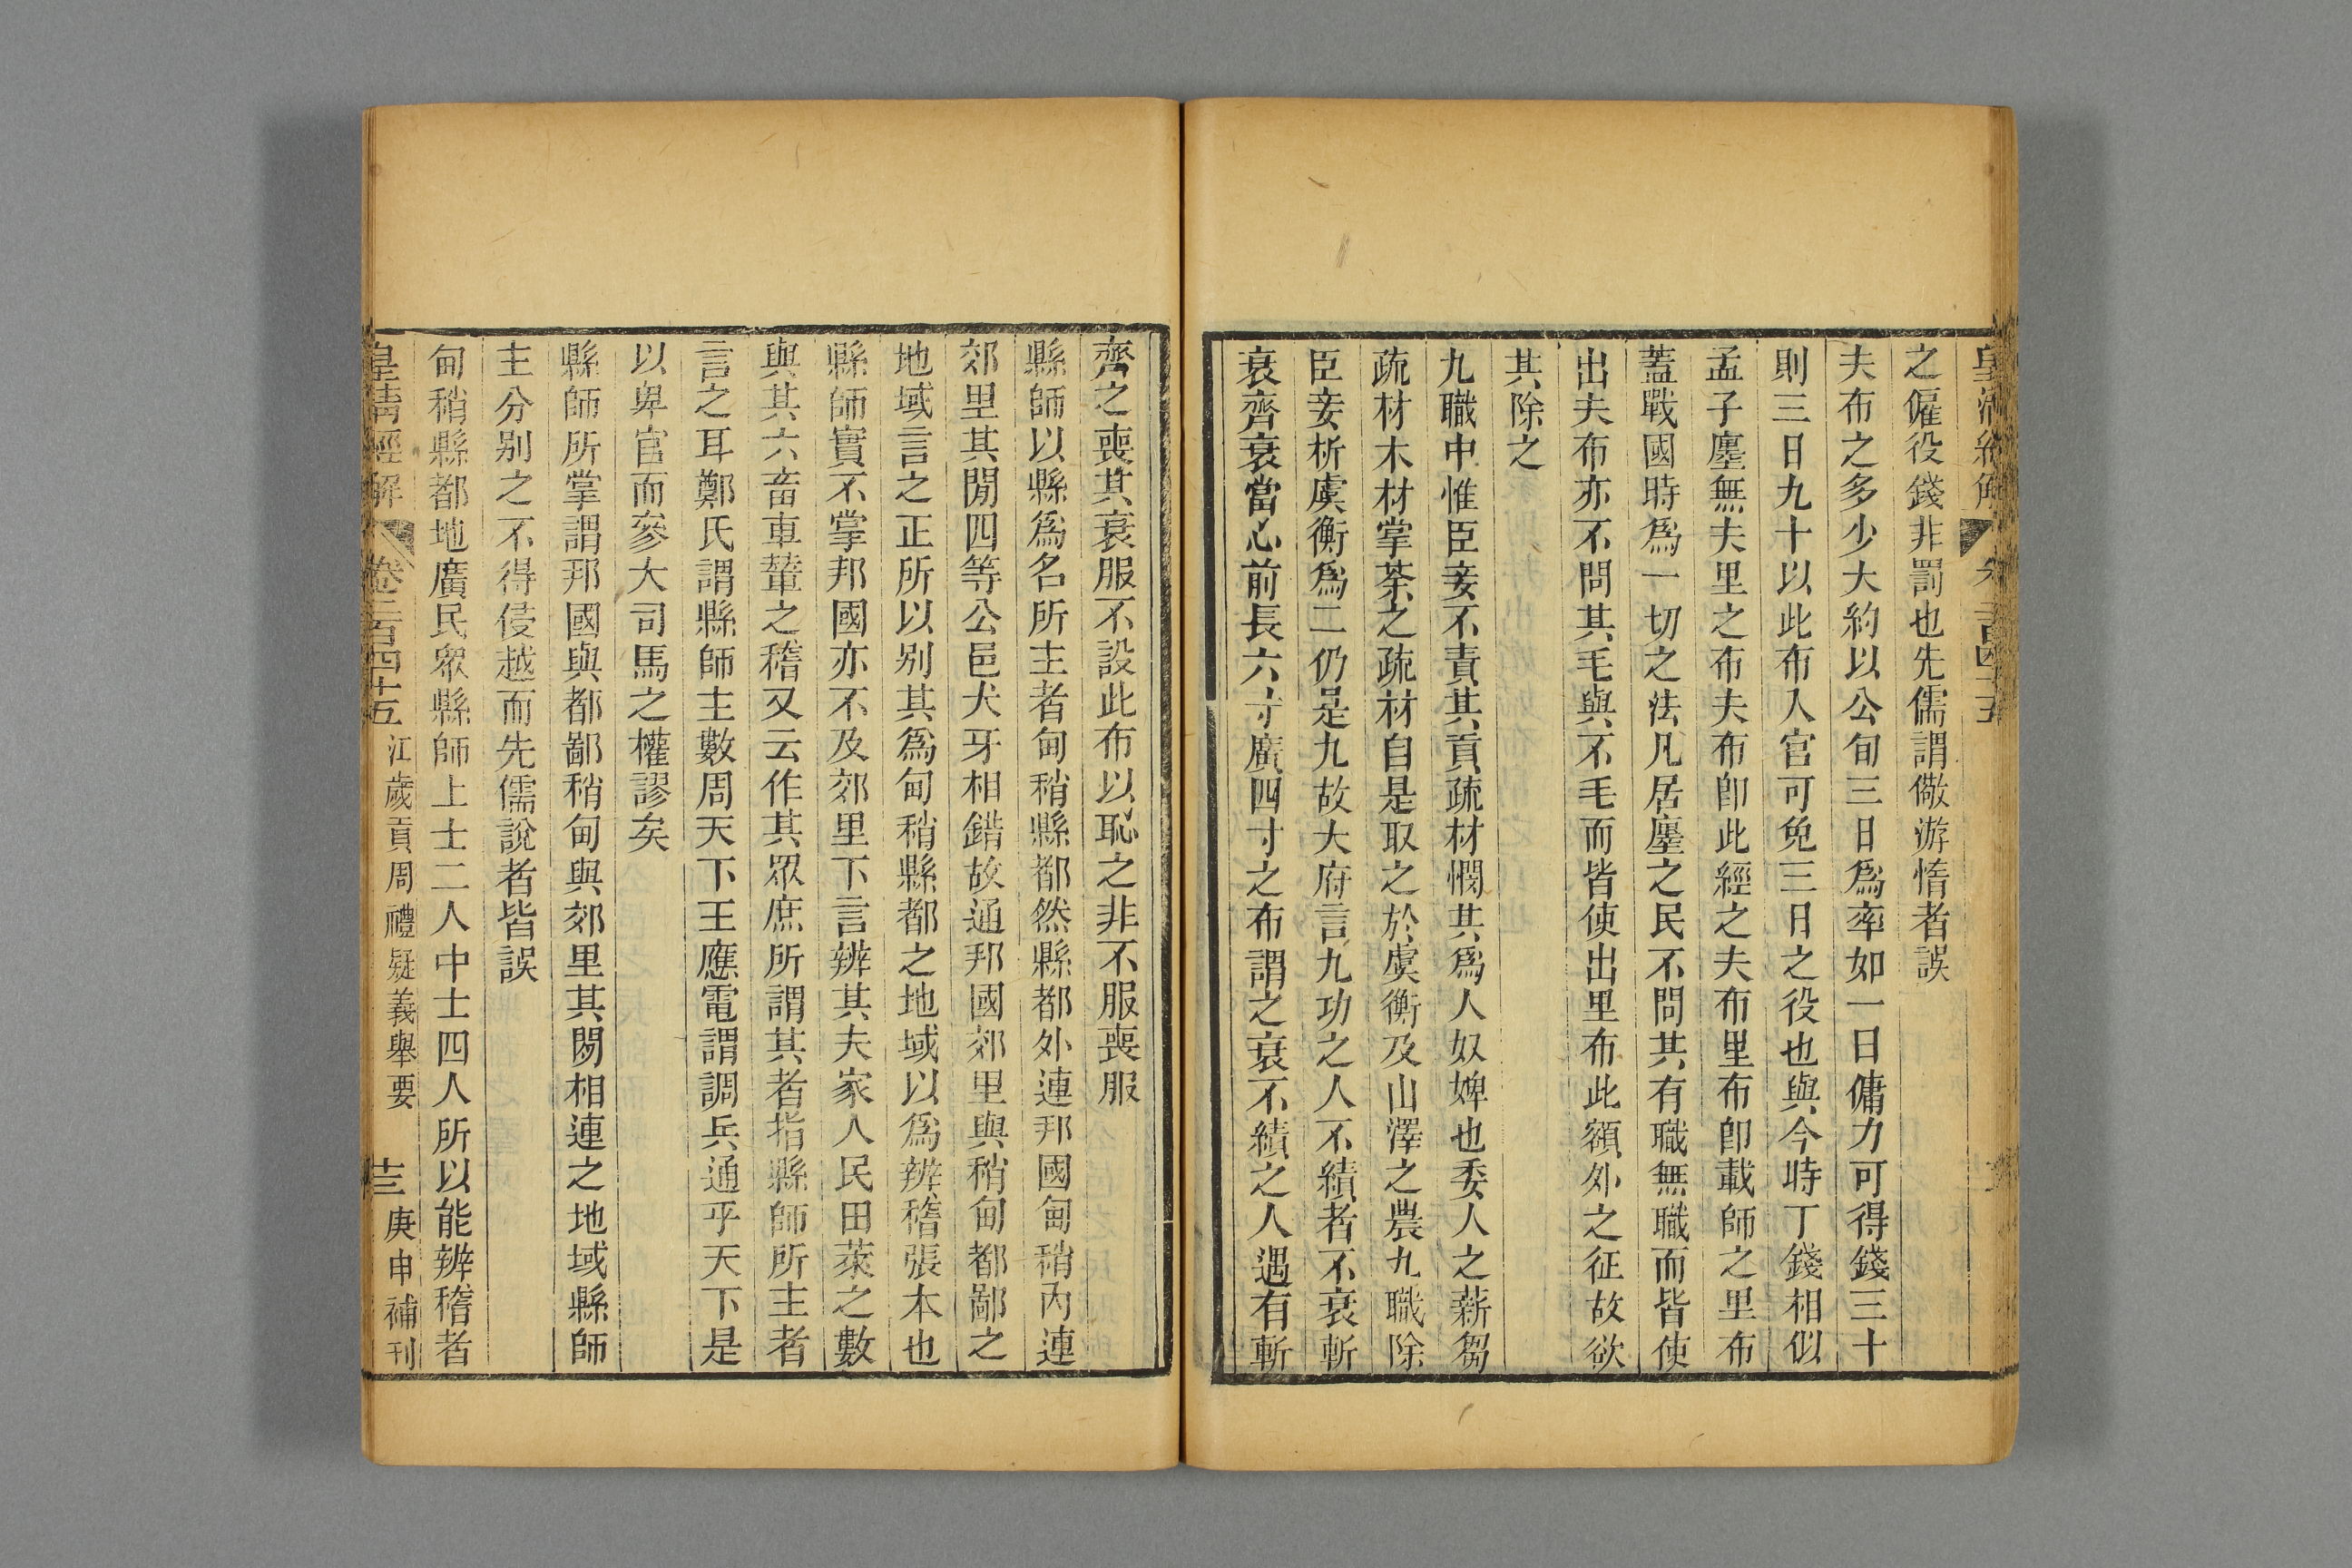 皇清經解
之僱役錢非罰也先儒謂儆游惰者誤
夫布之多少大約以公旬三日爲率如一日傭力可得錢三十
則三日九十以此布入官可免三日之役也與今時丁錢相似
孟子廛無夫里之布夫布卽此經之夫布里布卽載師之里布
蓋戰國時爲一切之法凡居廛之民不問其有職無職而皆使
出夫布亦不問其毛與不毛而皆使出里布此額外之征故欲
其除之
九職中惟臣妾不責其貢疏材憫其爲人奴婢也委人之薪芻
疏材木材掌荼之疏材自是取之於虞衡及山澤之農九職除
臣妾析虞衡爲二仍是九故大府言九功之人不績者不衰斬
衰齊衰當心前長六寸廣四寸之布謂之衰不績之人遇有斬
齊之喪其衰服不設此布以恥之非不服喪服
縣師以縣爲名所主者甸稍縣都然縣都外連邦國甸稍內連
郊里其閒四等公邑犬牙相錯故通邦國郊里與稍甸都鄙之
地域言之正所以别其爲甸稍縣都之地域以爲辨稽張本也
縣師實不掌邦國亦不及郊里下言辨其夫家人民田萊之數
與其六畜車輦之稽又云作其眾庶所謂其者指縣師所主者
言之耳鄭氏謂縣師主數周天下王應電謂調兵通乎天下是
以卑官而參大司馬之權謬矣
縣師所掌謂邦國與都鄙稍甸與郊里其閒相連之地域縣師
主分别之不得侵越而先儒說者皆誤
甸稍縣都地廣民眾縣師上士二人中士四人所以能辨稽者
皇清經解 卷二百四十五 江歲貢周禮疑義舉要 十三 庚申補刊